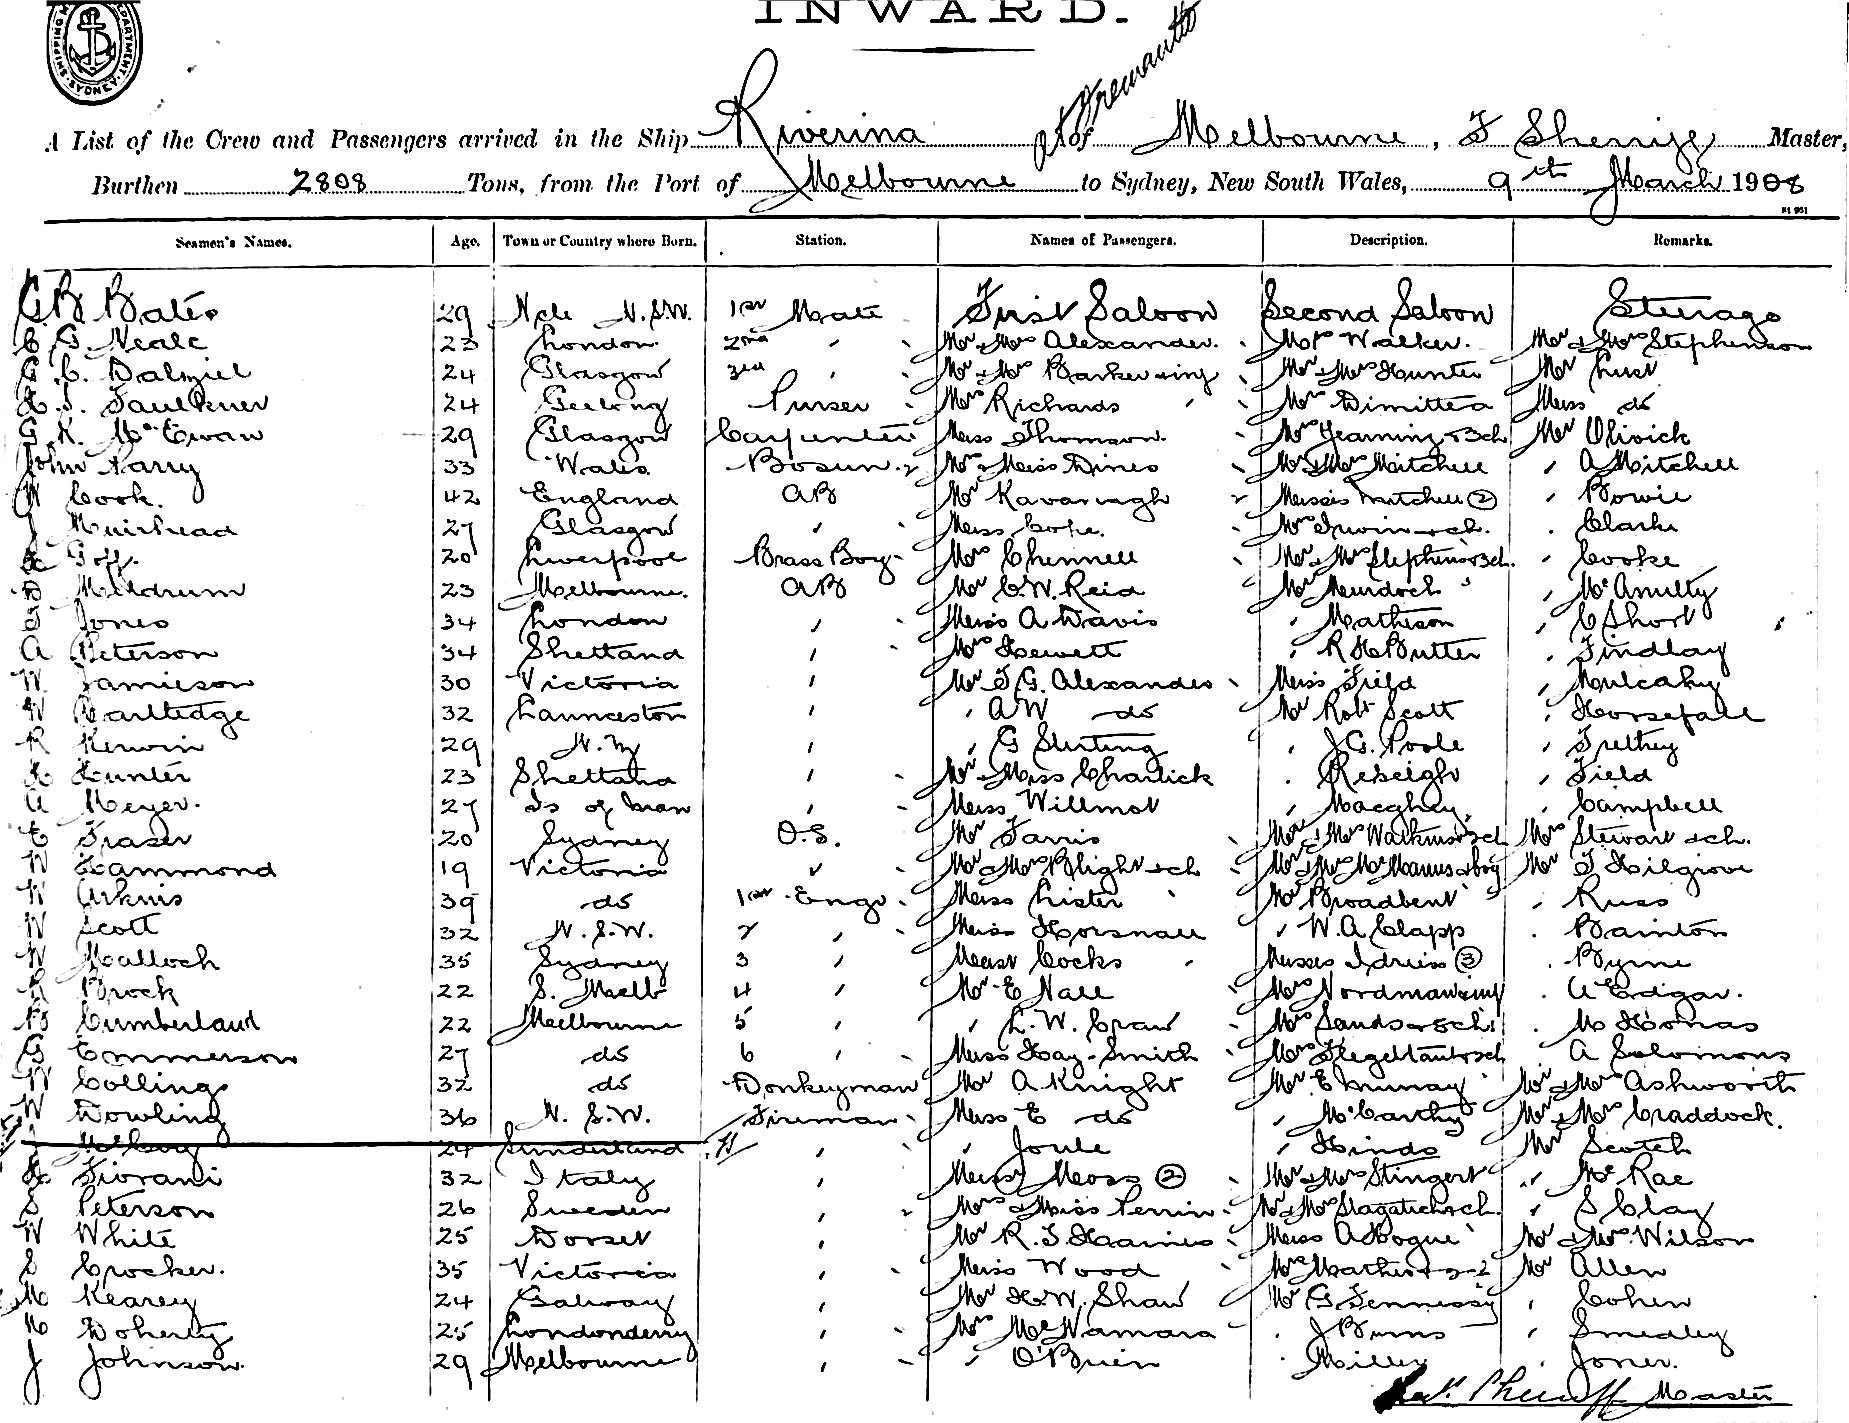 INWARD.
SHIPPING MASTER'S DEPARTMENT. SYDNEY.
Fremantle
A List of the Crew and Passengers arrived in the Ship Riverina of Melbourne, Master,
Burthen 2808 Tons, from the Port of Melbourne to Sydney, New South Wales, 9th March 1908
Seamen's Names. Age. Town or Country where Born. Station. Names of Passengers. Description. Remarks.
Bates 29 Ncle N.S.W. 1st Mate First Saloon Second Saloon Steerage
C. G. Neale 23 London 2nd " Mr & Mrs Alexander Walker. Mr & Mrs Stephenson
C. Dalziel 24 Glasgow 3rd " Mr & Mrs Barker & inf Mr & Mrs Hunter Mr Lust
Faulkner 24 Geelong Purser Mrs Richards Mr Dimittea Miss do
G K. McEwan 29 Glasgow Carpenter Miss Thomson. Mrs Jeaming & 3ch Mr Olivick
John Parry 33 Wales Bosun Mr & Miss Dines Mr & Mrs Mitchell " A Mitchell
W Cook. 42 England AB Mr Kavanagh Misses Mitchell (2) " Bowie
J Muirhead 27 Glasgow " Miss Cope. Mrs Irwin & ch. " Clarke
Goff. 20 Liverpool Brass Boy Mrs Chennell Mr & Mrs Stephens & 3ch. " Cooke
D Meldrum 23 Melbourne. AB Mr C.W. Reid Mr Murdoch " McAnulty
Jones 34 London " Miss A Davis " Mathison " C Short
A Peterson 34 Shetland " Mrs Hewett " R H Butter " Findlay
W Jamieson 30 Victoria " Mr T.G. Alexander Miss Field " Mulcahy
W Rartledge 32 Launceston " " A W do Mr Robt Scott " Horsefall
R Kerwin 29 N.Z " " G Stirling " J.G. Poole " Trethey
H Hunter 23 Shetland " Mr & Miss Charlick " Rebeigh " Field
A Meyer. 27 Is of Man " Miss Willmot " Macghey " Campbell
E Fraser 20 Sydney O.S. Mr Farris Mr & Mrs Watkins & ch Mrs Stewart & ch.
W Hammond 19 Victoria " Mr & Mrs Blight & ch Mr & Mrs McManus & boy Mr T Hilgrove
W Arkins 39 do 1st Engr. Miss Lister Mr Broadbent " Russ
W Scott 32 N.S.W. 2 " Miss Horsnall " W.A. Clapp " Bainton
W Malloch 35 Sydney 3 " Mast Cocks Misses Idriess (3) " Byrne
Brock 22 S. Melb 4 " Mr E Nall Mrs Nordman & inf " A Edgar.
Cumberland 22 Melbourne 5 " " L.W. Craw Mrs Sands & ch " M Hoonas
G Emmerson 27 do 6 " Miss Hay-Smith Mrs Flegeltaub & ch A Solomons
W Collings 32 do Donkeyman Mr A Knight Mr E Murray Mr & Mrs Ashworth
W Dowling 36 N.S.W. Fireman Miss E do " McCarthy Mr & Mrs Craddock.
McEvoy 24 Sunderland " " Joule " Hinds Mr Scotch
Fiorani 32 Italy " Misses Moss (2) Mr & Mrs Stingert " McRae
S Peterson 26 Sweden " Mrs & Miss Perrin Mr & Mrs Slagatich & ch. " S Clay
W White 25 Dorset " Mr R. T. Haines Miss A Bogue Mr & Mrs Wilson
S Crocker. 35 Victoria " Miss Wood Mrs Mather Mr Allen
M Kearey 24 Galway " Mr H.W. Shaw Mr G Fennessy " Cohen
M Doherty 25 Londonderry " Mrs McNamara " J Burns " Smedley
J Johnson. 29 Melbourne " " O'Brien " Miller " Jones.
Master